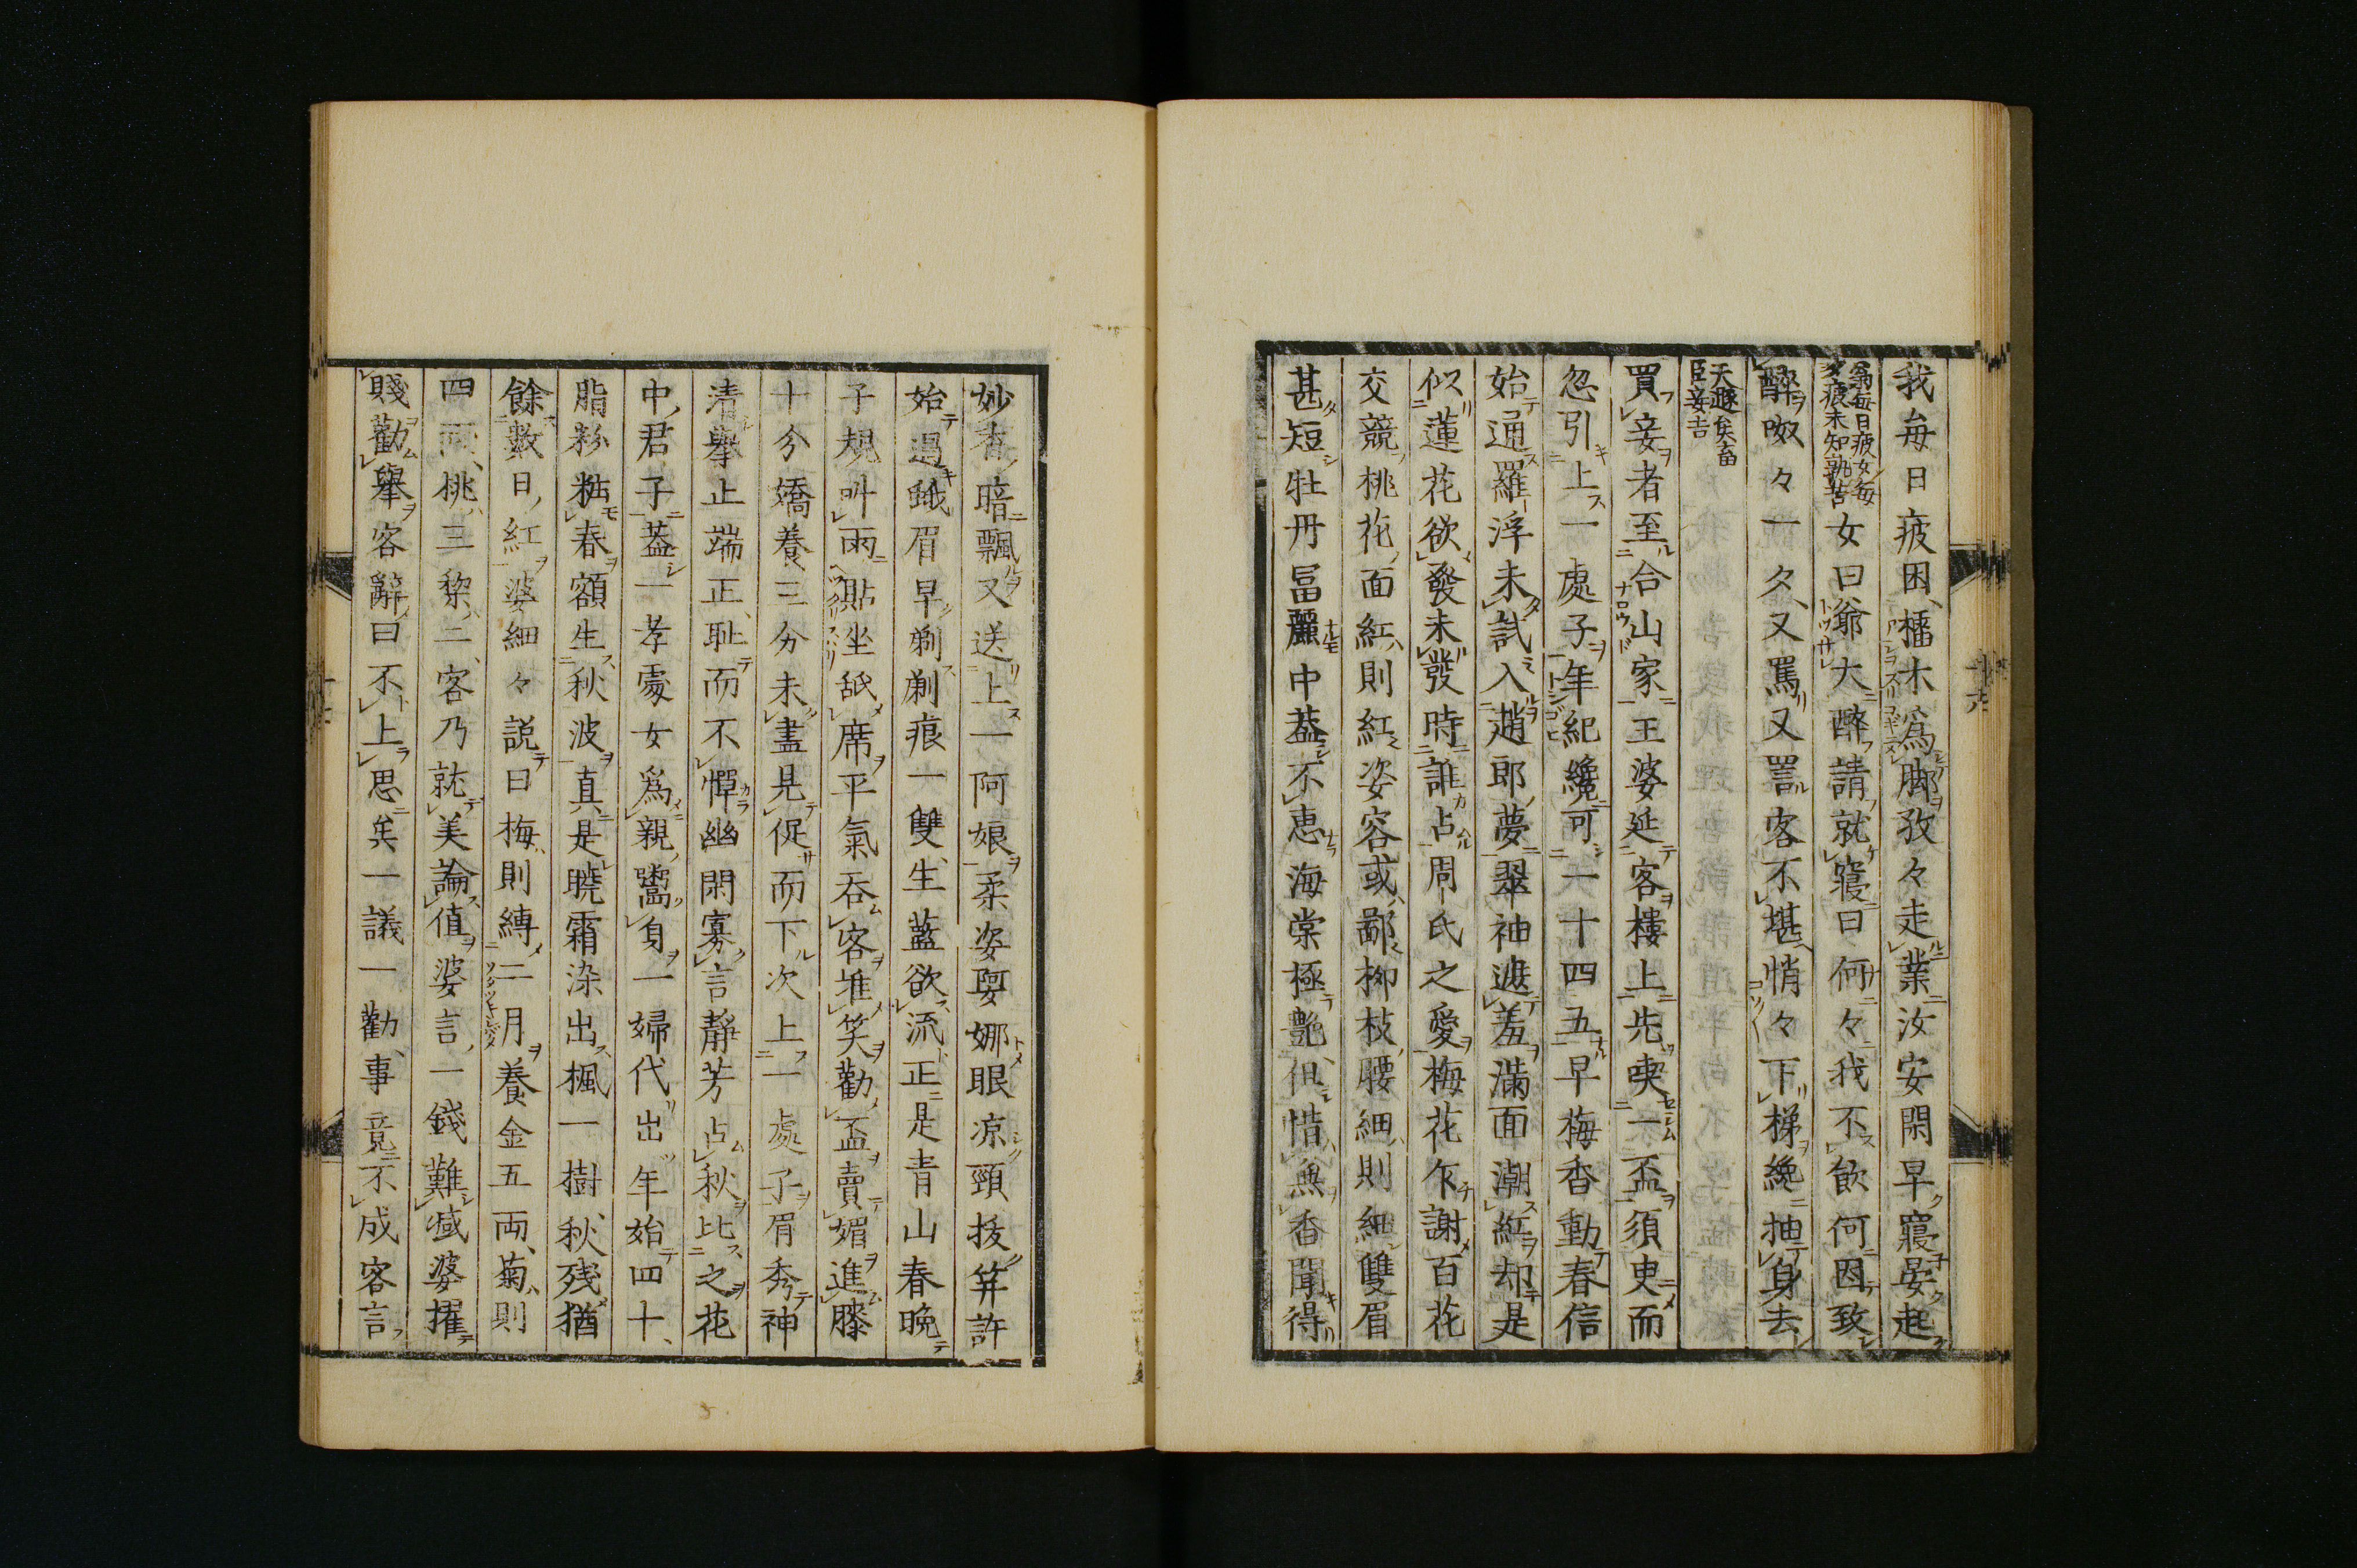 我毎日疲困、櫹木爲脚孜々走業汝安閑早寢晏起
翁毎日疲女毎
夕疲未知孰苦
女曰爺大醉請就寢曰何々我不飮何因致
醉呶々一夕、又罵又詈客不堪悄々下梯纔抽身去
天遯矣畜
臣妾吉
買妾者至合山家王婆延客樓上先喫一盃須臾而
忽引上一處子年紀纔可一十四五早梅香動春信
始通羅浮未試入趙郎夢翠袖遮羞滿面潮紅却是
似蓮花欲發未發時誰占周氏之愛梅花乍謝百花
交競桃花面紅則紅姿容或鄙柳枝腰細則細雙眉
甚短牡丹冨麗中葢不惠海棠極艶但惜無香聞得
妙香暗飄又送上一阿娘柔姿娿娜眼凉頸抜筓許
始過蛾眉早剃剃痕一雙、生藍欲流正是青山春晩
子規叫雨貼坐舐席平氣呑客堆笑勸盃賣媚進膝
十分嬌養三分未盡見促而下次上一處子眉秀神
清擧止端正、耻而不憚幽閑寡言靜芳占秋比之花
中君子葢一孝處女爲親鬻身一婦代出年始四十、
脂粉粘春額生秋波真是曉霜染出楓一樹、秋殘猶
餘數日、紅婆細々説曰梅則縛二月養金五両、菊則
四両、桃三棃二客乃就美論値婆言、一錢難减婆擢
賤勸擧客辭曰不上思矣一議一勸、事竟不成客言